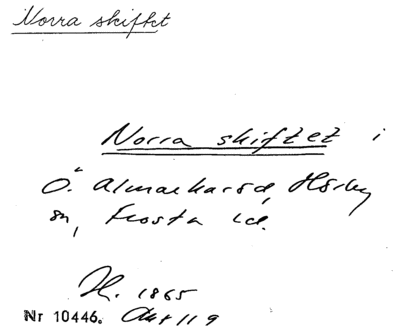 Norra skiftet
Norra skiftet i
Ö. Almarharad, Hörby
sn, Frosta hd.
H. 1865
Nr 10446. Akt 119